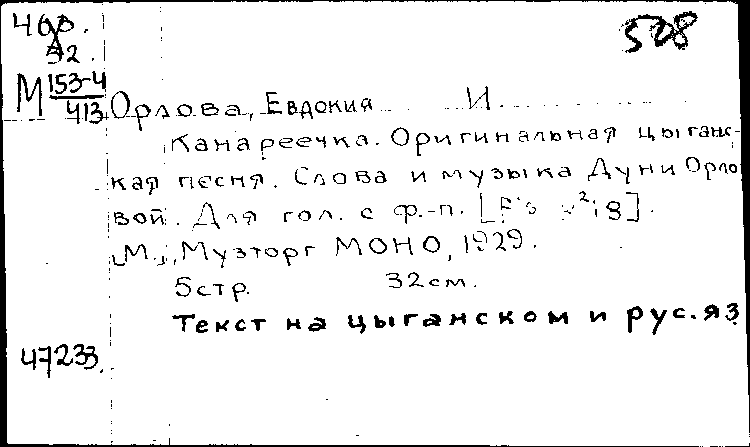 508
52.
М 153-4
413
Орлова, Евдокия И
Канареечка. Оригинальная цыганс-
кая песня. Слова и музыка Дуни Орло
вой. Для гол. с ф.-п.
М., Музторг МОНО, 1929.
5стр. 32см.
Текст на цыганском и рус.яз
47233.